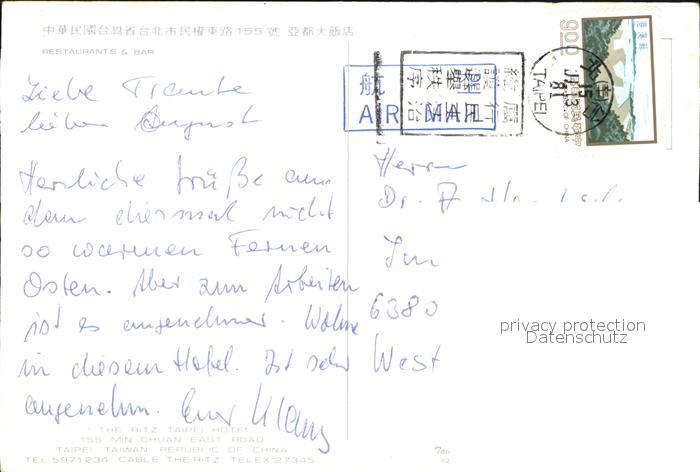 中華民國台灣省台北市民權東路155號 亞都大飯店
RESTAURANTS & BAR
Liebe Traute
lieber August
Herzliche Grüße aus
dem diesmal nicht
so warmen Fernen
Osten. Aber zum Arbeiten
ist es angenehmer. Wohne
in diesem Hotel. Ist sehr
angenehm. Euer Klaus
THE RITZ TAIPEI HOTEL
155 MIN CHUAN EAST ROAD
TAIPEI TAIWAN, REPUBLIC OF CHINA
TEL 5971234 CABLE THE-RITZ TELEX 27345
航
AIR MAIL
TAIPEI
9.00
Herrn
Dr.
6380
West
privacy protection
Datenschutz
12